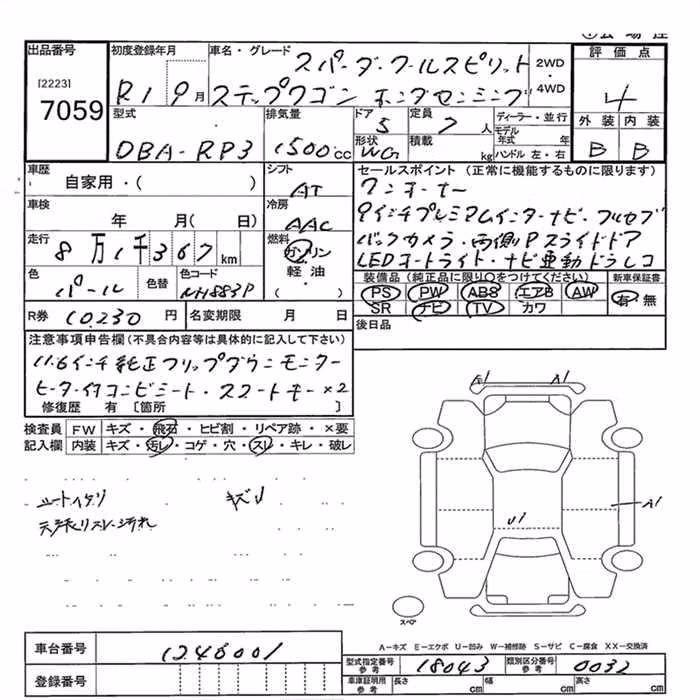 出品番号
[2223]
7059
初度登録年月
R1 9月
車名・グレード
スパーダ・クールスピリット
ステップワゴン ホンダセンシング
2WD
4WD
評価点
4
外装 内装
B B
型式
DBA-RP3
排気量
1500cc
ドア
5
定員
7人
形状
WG
積載
kg
ディーラー・並行
モデル年式 年
ハンドル 左・右
車歴
自家用・( )
シフト
AT
車検
年 月( 日)
冷房
AAC
走行
8万1千367km
燃料
ガソリン
軽油・
( )
色
パール
色替
色コード
NH883P
セールスポイント (正常に機能するものに限ります)
ワンオーナー
9インチプレミアムインターナビ・フルセグ
バックカメラ・両側Pスライドドア
LEDオートライト・ナビ連動ドラレコ
装備品 (純正品に限り○をつけてください)
新車保証書
PS PW ABS エアB AW
有・無
SR ナビ TV カワ
R券 10,230円
名変期限 月 日
後日品
注意事項申告欄(不具合内容等は具体的に記入して下さい)
11.6インチ純正フリップダウンモニター
ヒーター付コンビシート・スマートキー×2
修復歴 有 〔箇所 〕
検査員 FW キズ・飛石・ヒビ割・リペア跡・×要
記入欄 内装 キズ・汚レ・コゲ・穴・スレ・キレ・破レ
シートイタリ キズリ
天張リスレ汚れ
A1 A1
A1
U1
スペア
A-キズ E-エクボ U-凹み W-補修跡 S-サビ C-腐食 XX-交換済
車台番号
1246001
登録番号
型式指定番号 参考 18043
類別区分番号 参考 0032
車庫証明用 参考 長さ cm 幅 cm 高さ cm